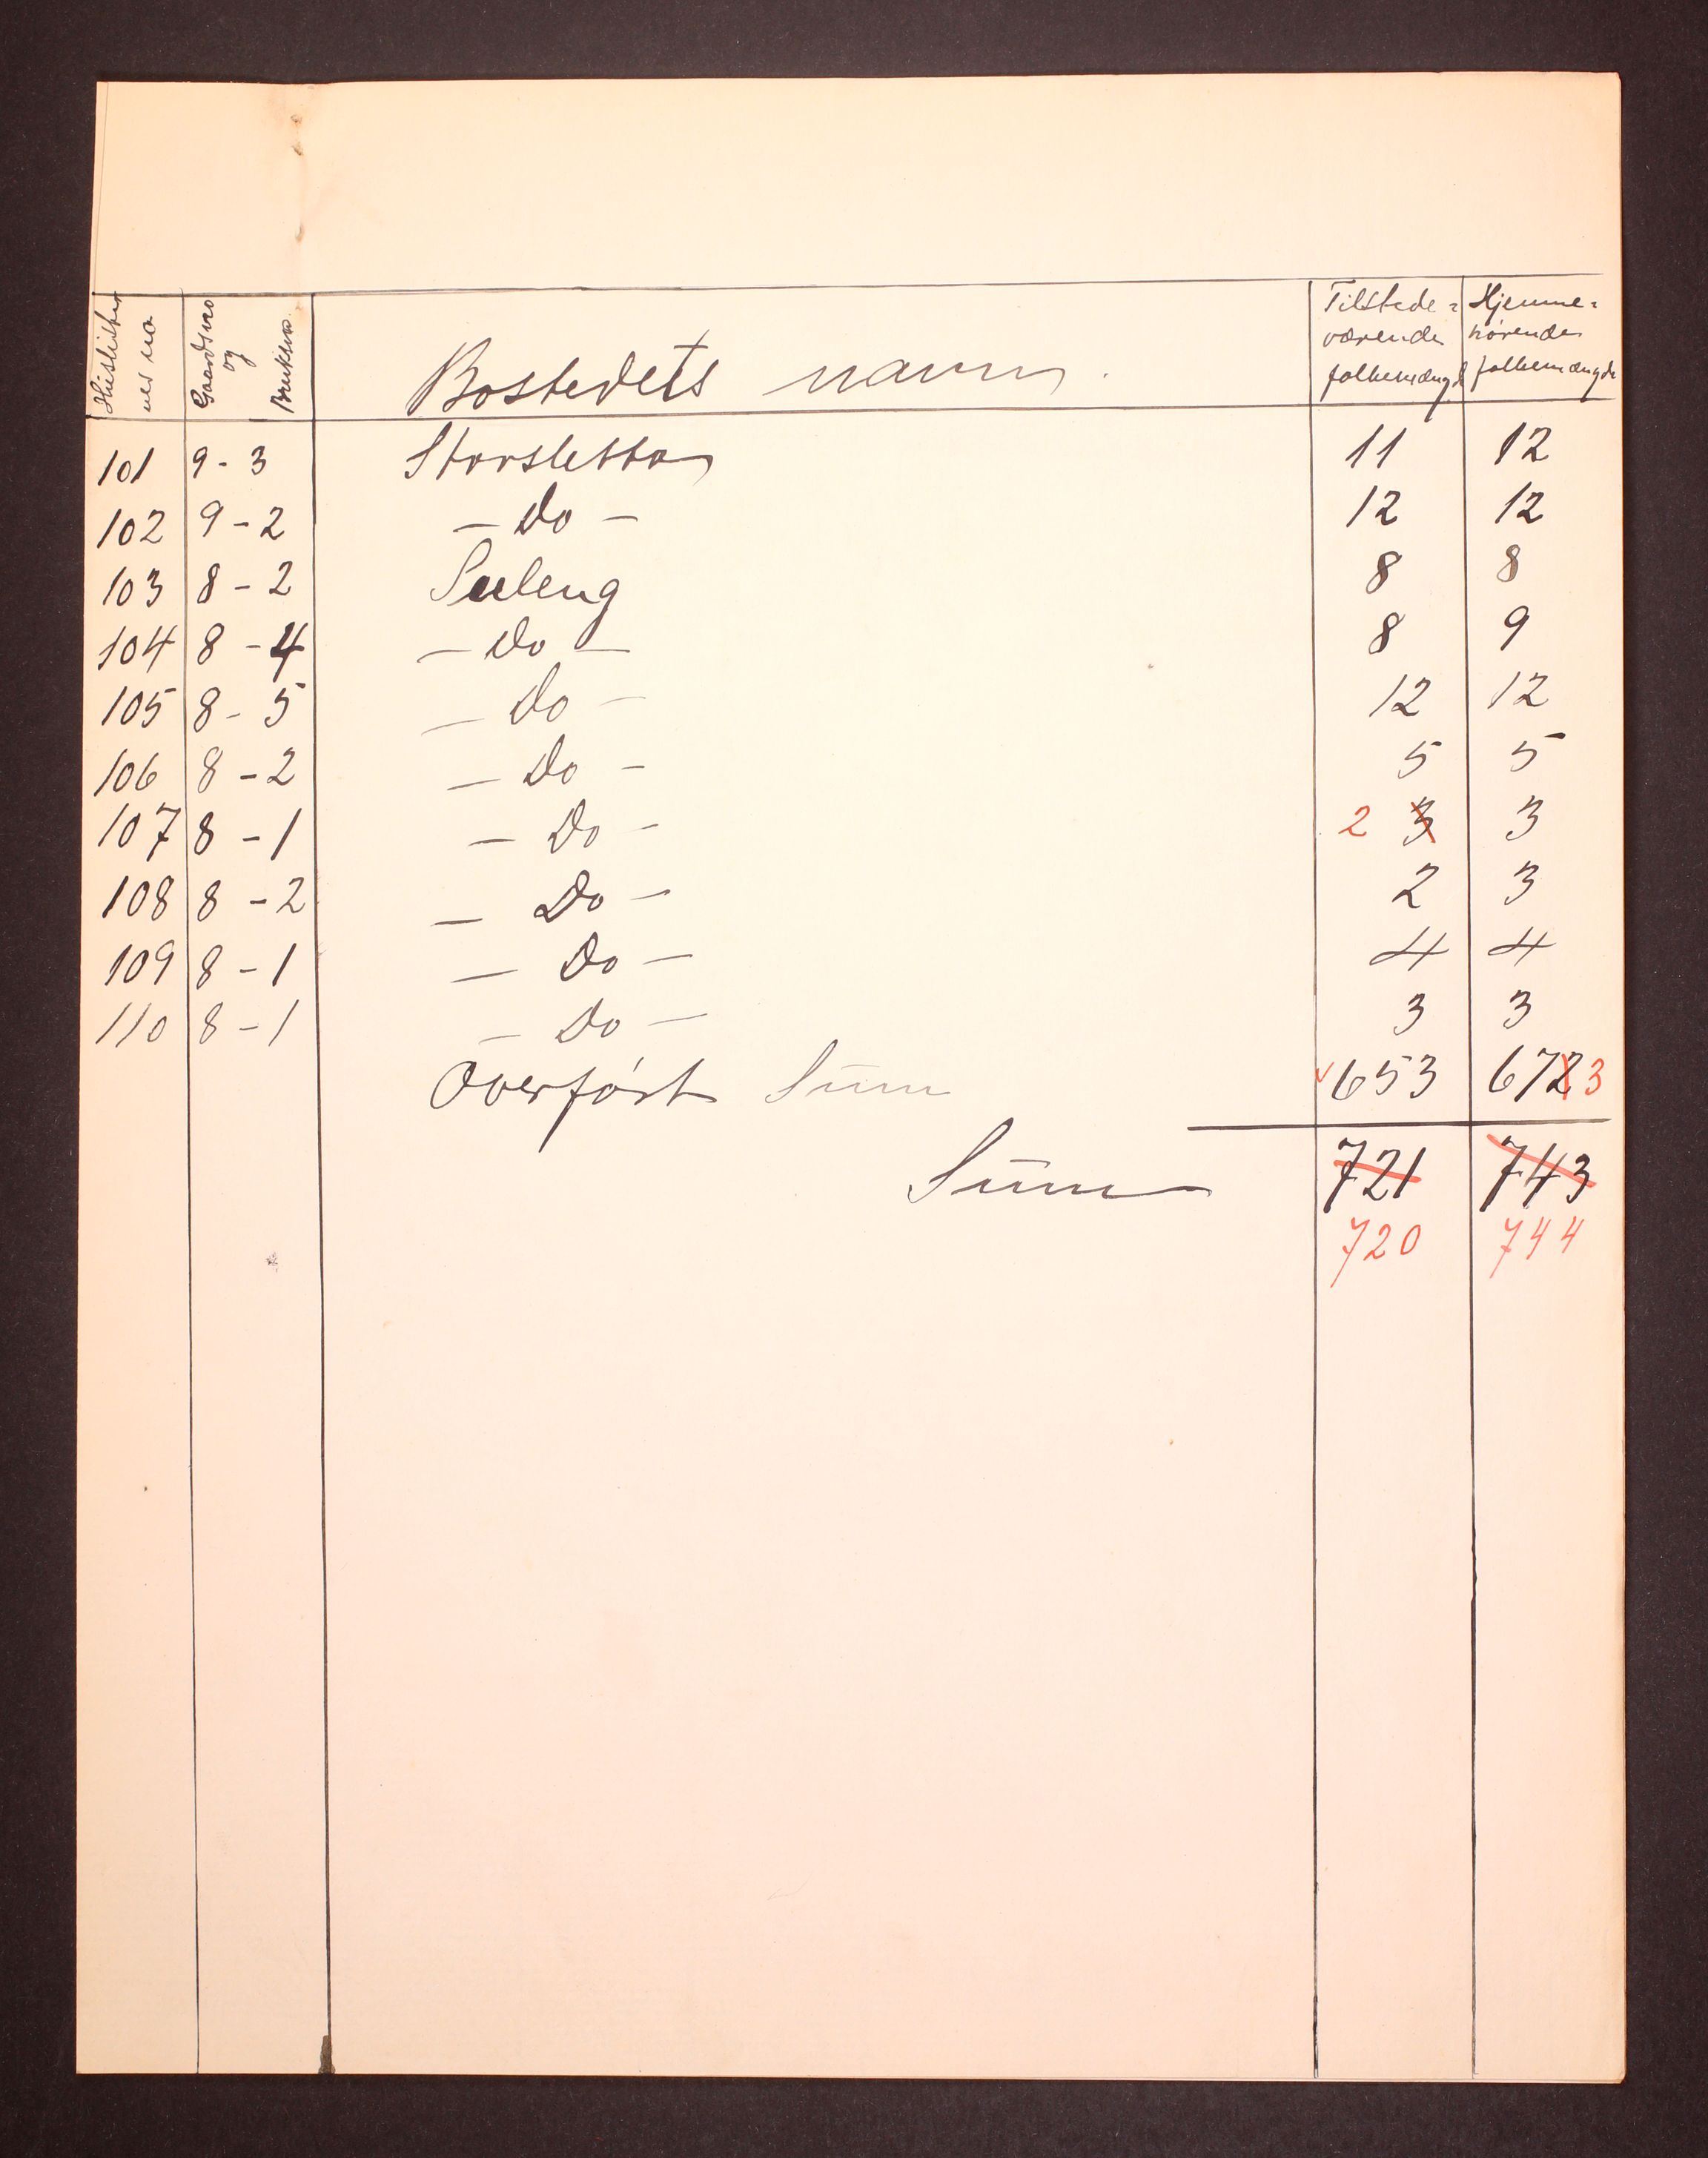 Huslister
nes no
Gaardsno
og
Bruksno.
Bostedets navn.
Tilstede=
værende
folkemængde
Hjemme=
hørende
folkemængde
101 9 - 3 Storsletta 11 12
102 9 - 2 - Do - 12 12
103 8 - 2 Sæleng 8 8
104 8 - 4 - Do - 8 9
105 8 - 5 - Do - 12 12
106 8 - 2 - Do - 5 5
107 8 - 1 - Do - 2 3 3
108 8 - 2 - Do - 2 3
109 8 - 1 - Do - 4 4
110 8 - 1 - Do - 3 3
Overført Sum 653 672 3
Sum 721 743
720 744